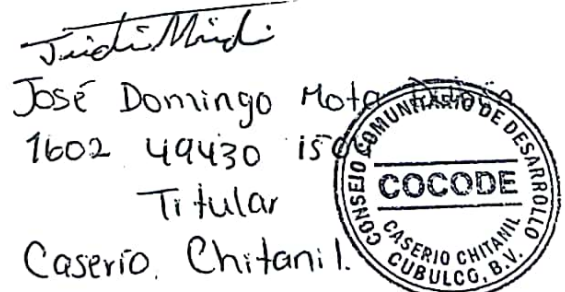 José Domingo Mota
1602 49430
Titular
Caserío. Chitanil.
CONSEJO COMUNITARIO DE DESARROLLO
COCODE
CASERIO CHITANIL
CUBULCO, B.V.